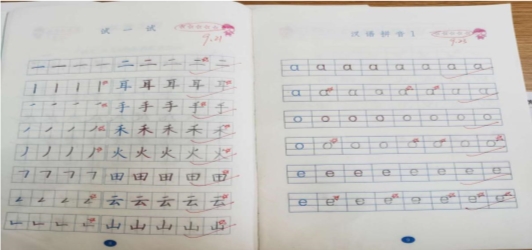 试一试
一 一 一 一 二 二 二 二 二
丨 丨 丨 丨 耳 耳 耳 耳 耳
手 手 手 手 手
丿 丿 丿 丿 禾 禾 禾 禾 禾
丿 丿 丿 丿 火 火 火 火 火
㇆ ㇆ ㇆ ㇆ 田 田 田 田 田
𠃋 𠃋 𠃋 𠃋 云 云 云 云 云
𠃊 𠃊 𠃊 𠃊 山 山 山 山 山
汉语拼音1
a a a a a a a a
a a a a a a a a
o o o o o o o o
o o o o o o o o
e e e e e e e e
e e e e e e e e